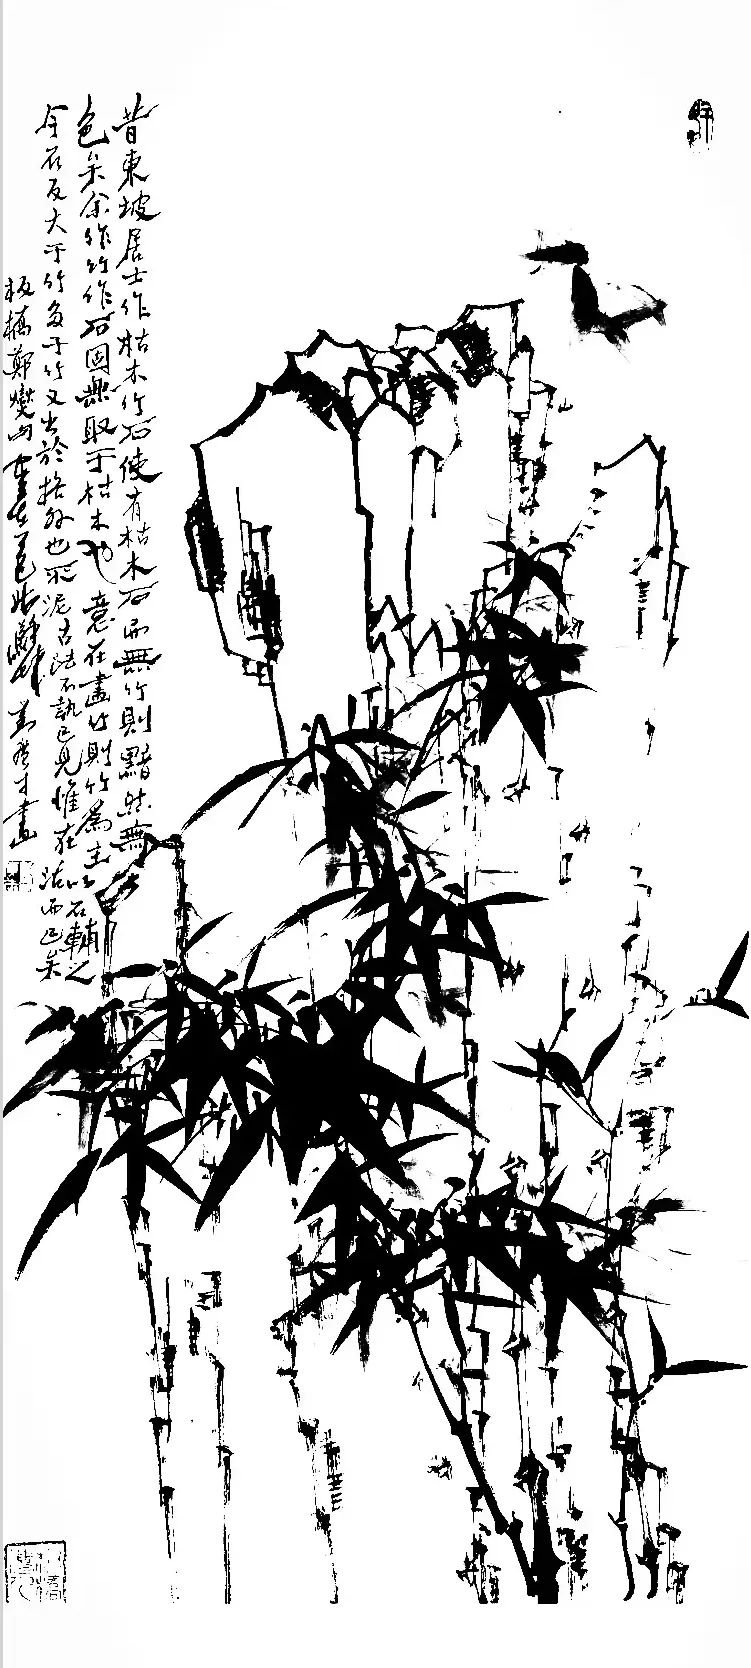 昔東坡居士作枯木竹石使有枯木石而無竹則黯然無
色矣余作竹作石固無取于枯木也意在畫竹則竹為主以石輔之
今石反大于竹多于竹又出於格外也不泥古法不執己見惟在活而已矣
板橋鄭燮